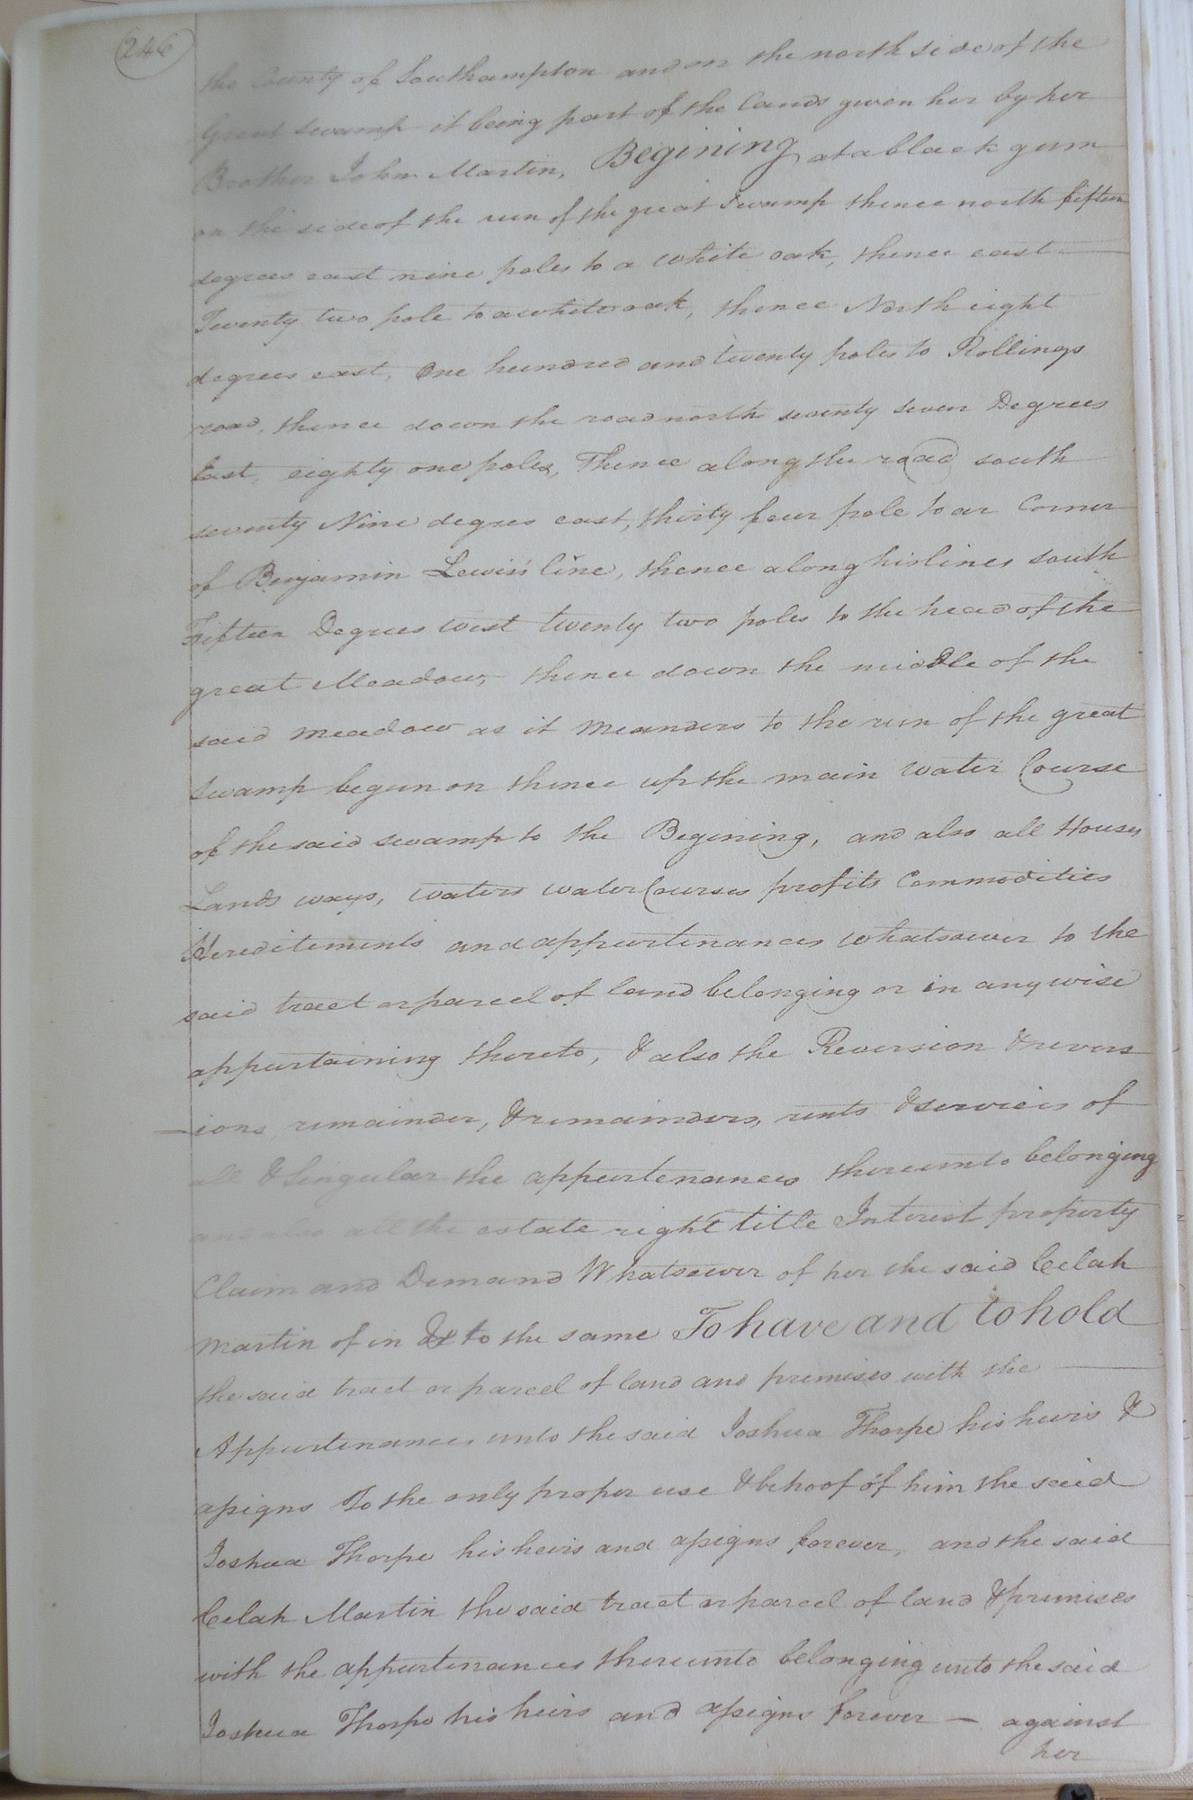 246
the County of Southampton and on the north side of the
Great swamp it being part of the Lands given her by her
Brother John Martin, Begining at a black gum
on the side of the run of the great Swamp thence north fifteen
degrees east nine poles to a white oak, thence east
Twenty two pole to a white oak, thence North eight
degrees east, One hundred and twenty poles to Rollings
road, thence down the road north seventy seven Degrees
East, eighty one poles, Thence along the road south
seventy Nine degres east, thirty four pole to a Corner
of Benjamin Lewis's line, thence along his lines south
Fifteen Degrees west twenty two poles to the head of the
great Meadow, thence down the middle of the
said meadow as it Meanders to the run of the great
swamp begun on thence up the main water Course
of the said swamp to the Begining, and also all Houses
Lands ways, waters water Courses profits Commodities
Hereditements and appurtinances whatsoever to the
said tract or parcel of land belonging or in any wise
appurtaining thereto, & also the Reversion & revers
–ions remainder, & remainders, rents & services of
all & Singular the appurtenances thereunto belonging
and also all the estate right title Interest property
Claim and Demand Whatsoever of her the said Celah
Martin of in & to the same To have and to hold
the said tract or parcel of land and premises with the
Appurtenances unto the said Joshua Thorpe his heirs &
assigns To the only proper use & behoof of him the said
Joshua Thorpe his heirs and assigns forever, and the said
Celah Martin the said tract or parcel of land & premises
with the appurtinances thereunto belonging unto the said
Joshua Thorpe his heirs and assigns forever — against
her